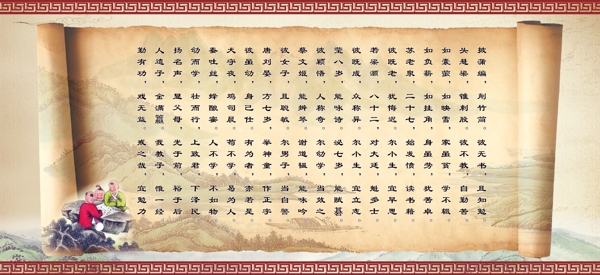 披蒲编，削竹简。彼无书，且知勉
头悬梁，锥刺股。彼不教，自勤苦
如囊萤，如映雪。家虽贫，学不辍
如负薪，如挂角。身虽劳，犹苦卓
苏老泉，二十七。始发愤，读书籍
彼既老，犹悔迟。尔小生，宜早思
若梁灏，八十二。对大廷，魁多士
彼既成，众称异。尔小生，宜立志
莹八岁，能咏诗。泌七岁，能赋碁
彼颖悟，人称奇。尔幼学，当效之
蔡文姬，能辨琴。谢道韫，能咏吟
彼女子，且聪敏。尔男子，当自警
唐刘晏，方七岁。举神童，作正字
彼虽幼，身己仕。有为者，亦若是
犬守夜，鸡司晨。苟不学，曷为人
蚕吐丝，蜂酿蜜。人不学，不如物
幼而学，壮而行。上致君，下泽民
扬名声，显父母。光于前，裕于后
人遗子，金满籯。我教子，惟一经
勤有功，戏无益。戒之哉，宜勉力